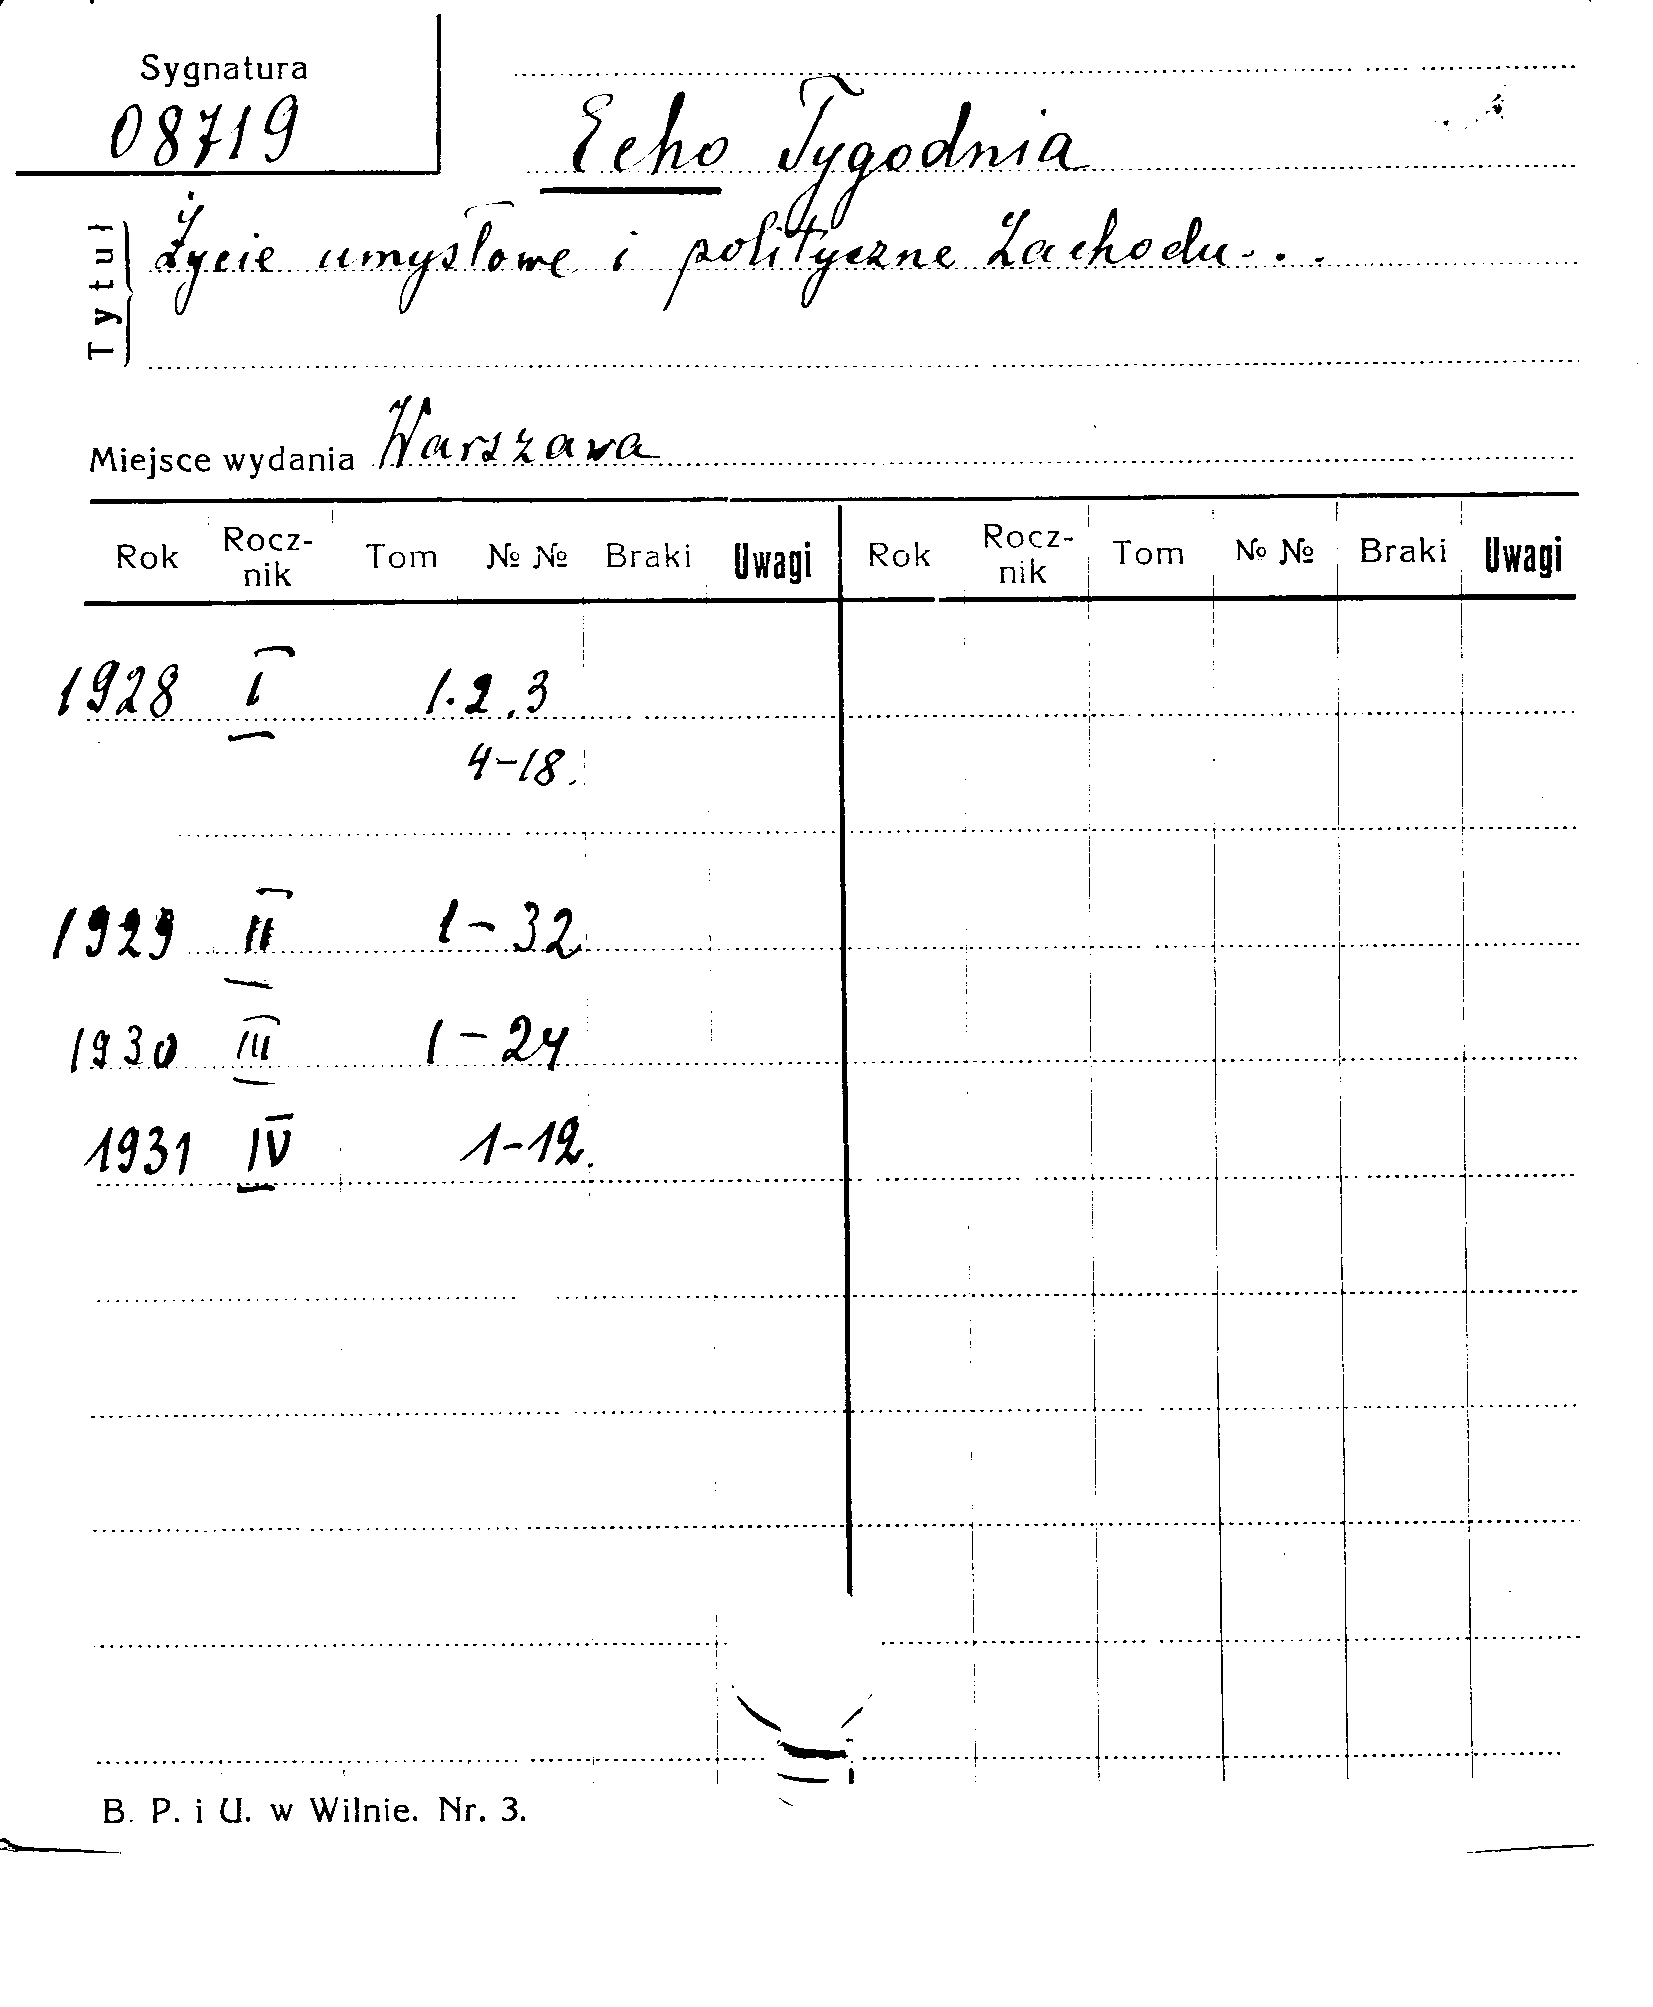 Sygnatura
08719
Echo Tygodnia
Tytuł
Życie umysłowe i polityczne Zachodu...
Miejsce wydania Warszawa
Rok Rocz-nik Tom № № Braki Uwagi Rok Rocz-nik Tom № № Braki Uwagi
1928 I 1.2,3
4-18.
1929 II 1-32
1930 III 1-24
1931 IV 1-12.
B. P. i U. w Wilnie. Nr. 3.